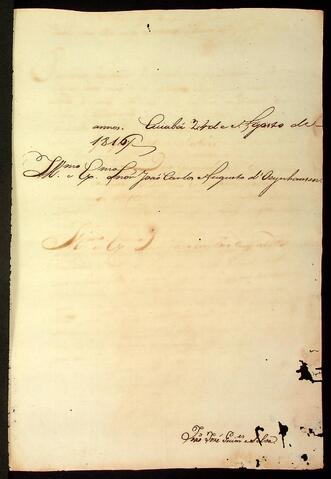 annos. Cuiabá 24 de Agosto de
1816
Illmo. e Exmo. Snor. João Carlos Augusto d'Oeynhausen
João José Guimes. e Silva